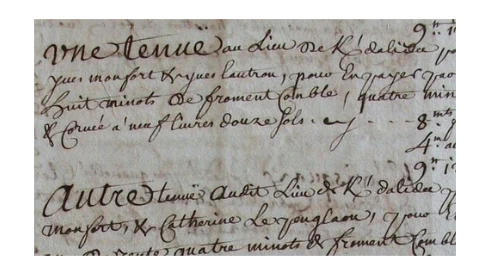 9.ll 1
Une tenue au Lieu de K/dalidec po
yves monfort & yves Lautron, pour En payer par
huit minots de froment Comble, quatre min
& Corvée a neuf livres douze sols . 8.mts
4.m au
9.ll 1
Autre tenue audit Lieu de K/dalidec
monfort, & Catherine Le jouglaon, pour
de rente quatre minots de froment Comble